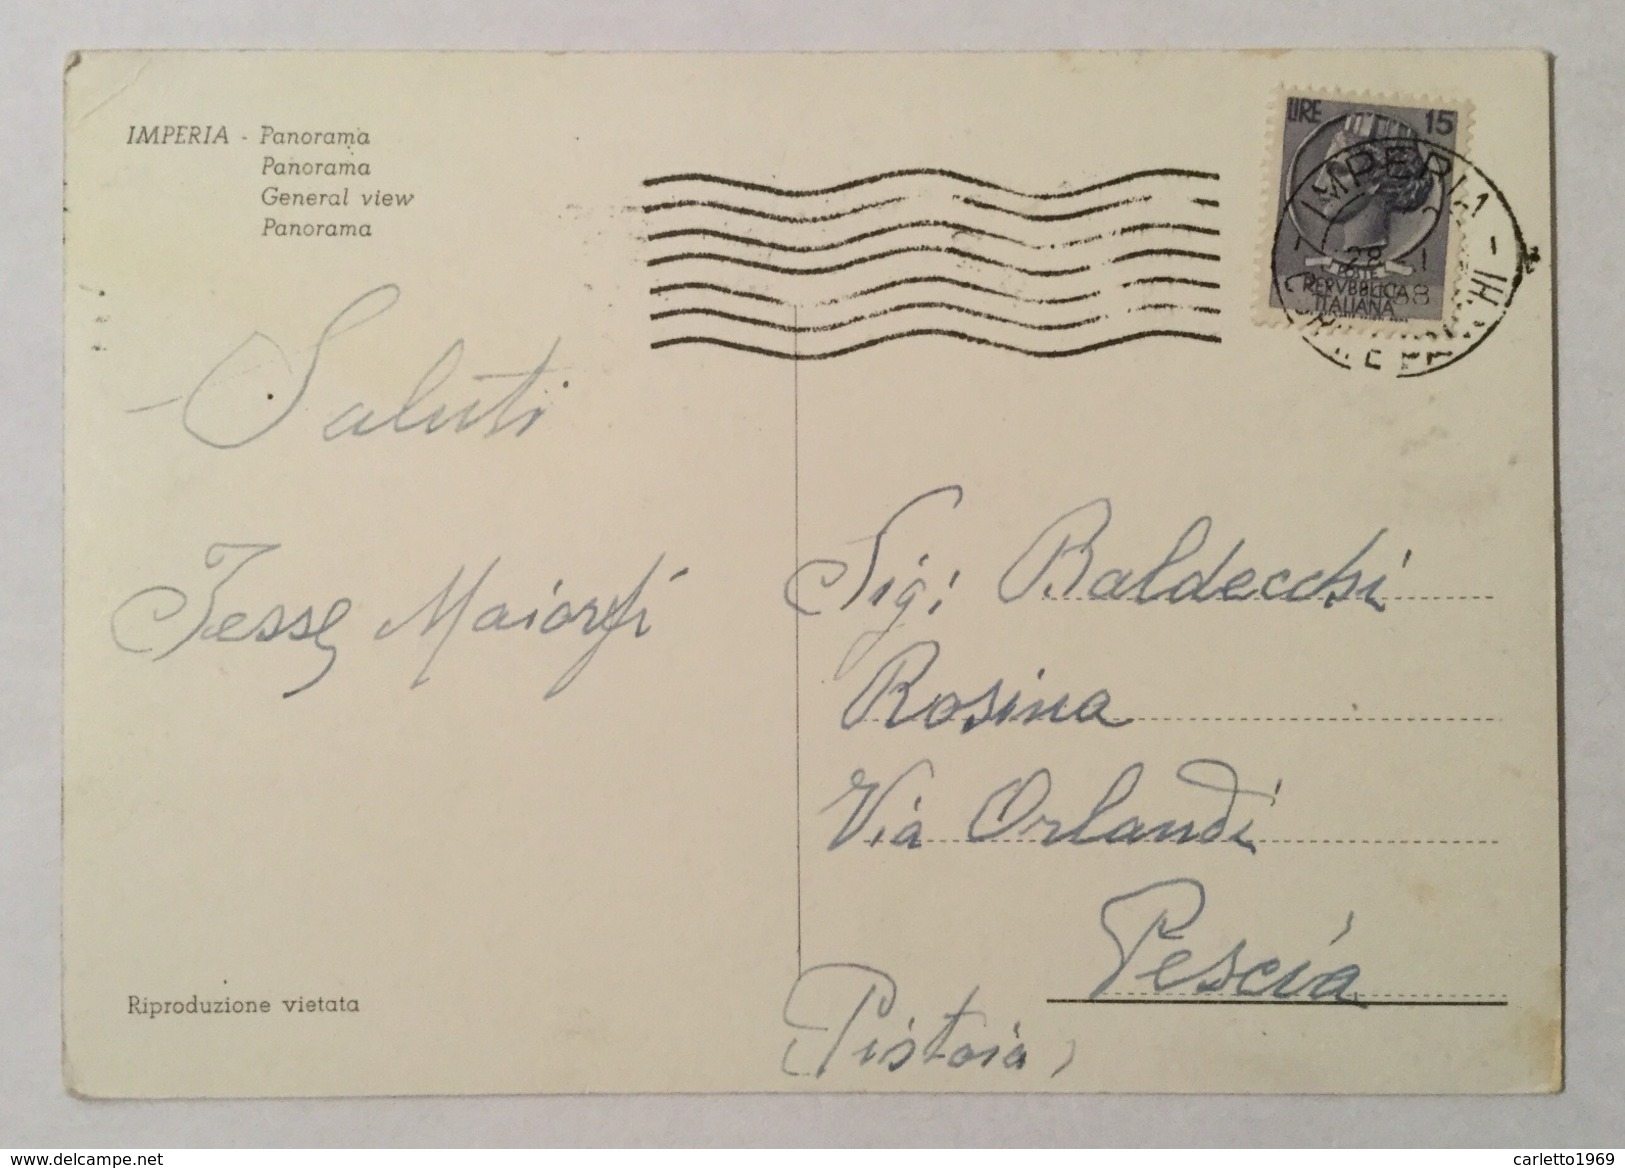 IMPERIA - Panorama
Panorama
General view
Panorama
LIRE 15
IMPERIA
28
POSTE
REPVBBLICA
ITALIANA
- Saluti
Maiorfi
Sig: Baldecchi
Rosina
Via Orlandi
Pescia
(Pistoia)
Riproduzione vietata
www.delcampe.net
carletto1969